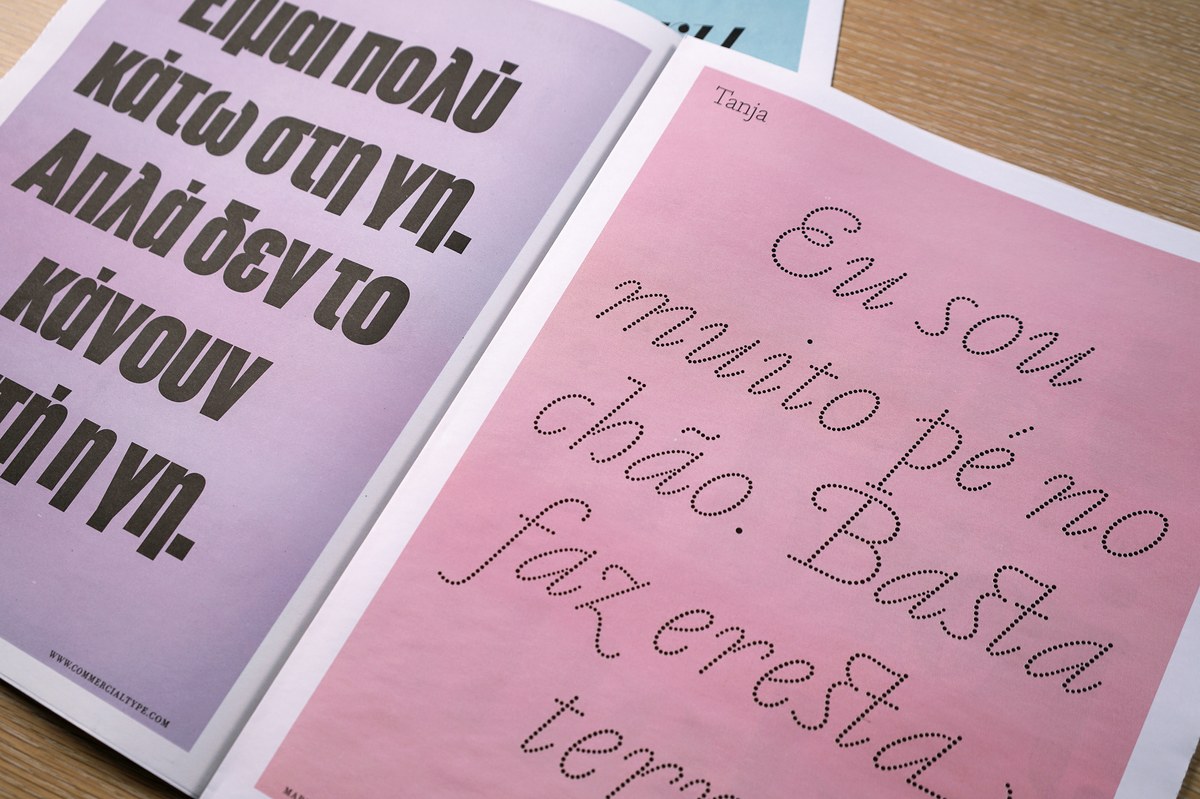 Είμαι πολύ
κάτω στη γη.
Απλά δεν το
κάνουν
η γη.
WWW.COMMERCIALTYPE.COM
Tanja
Eu sou
muito pé no
chão. Basta
faz eresta